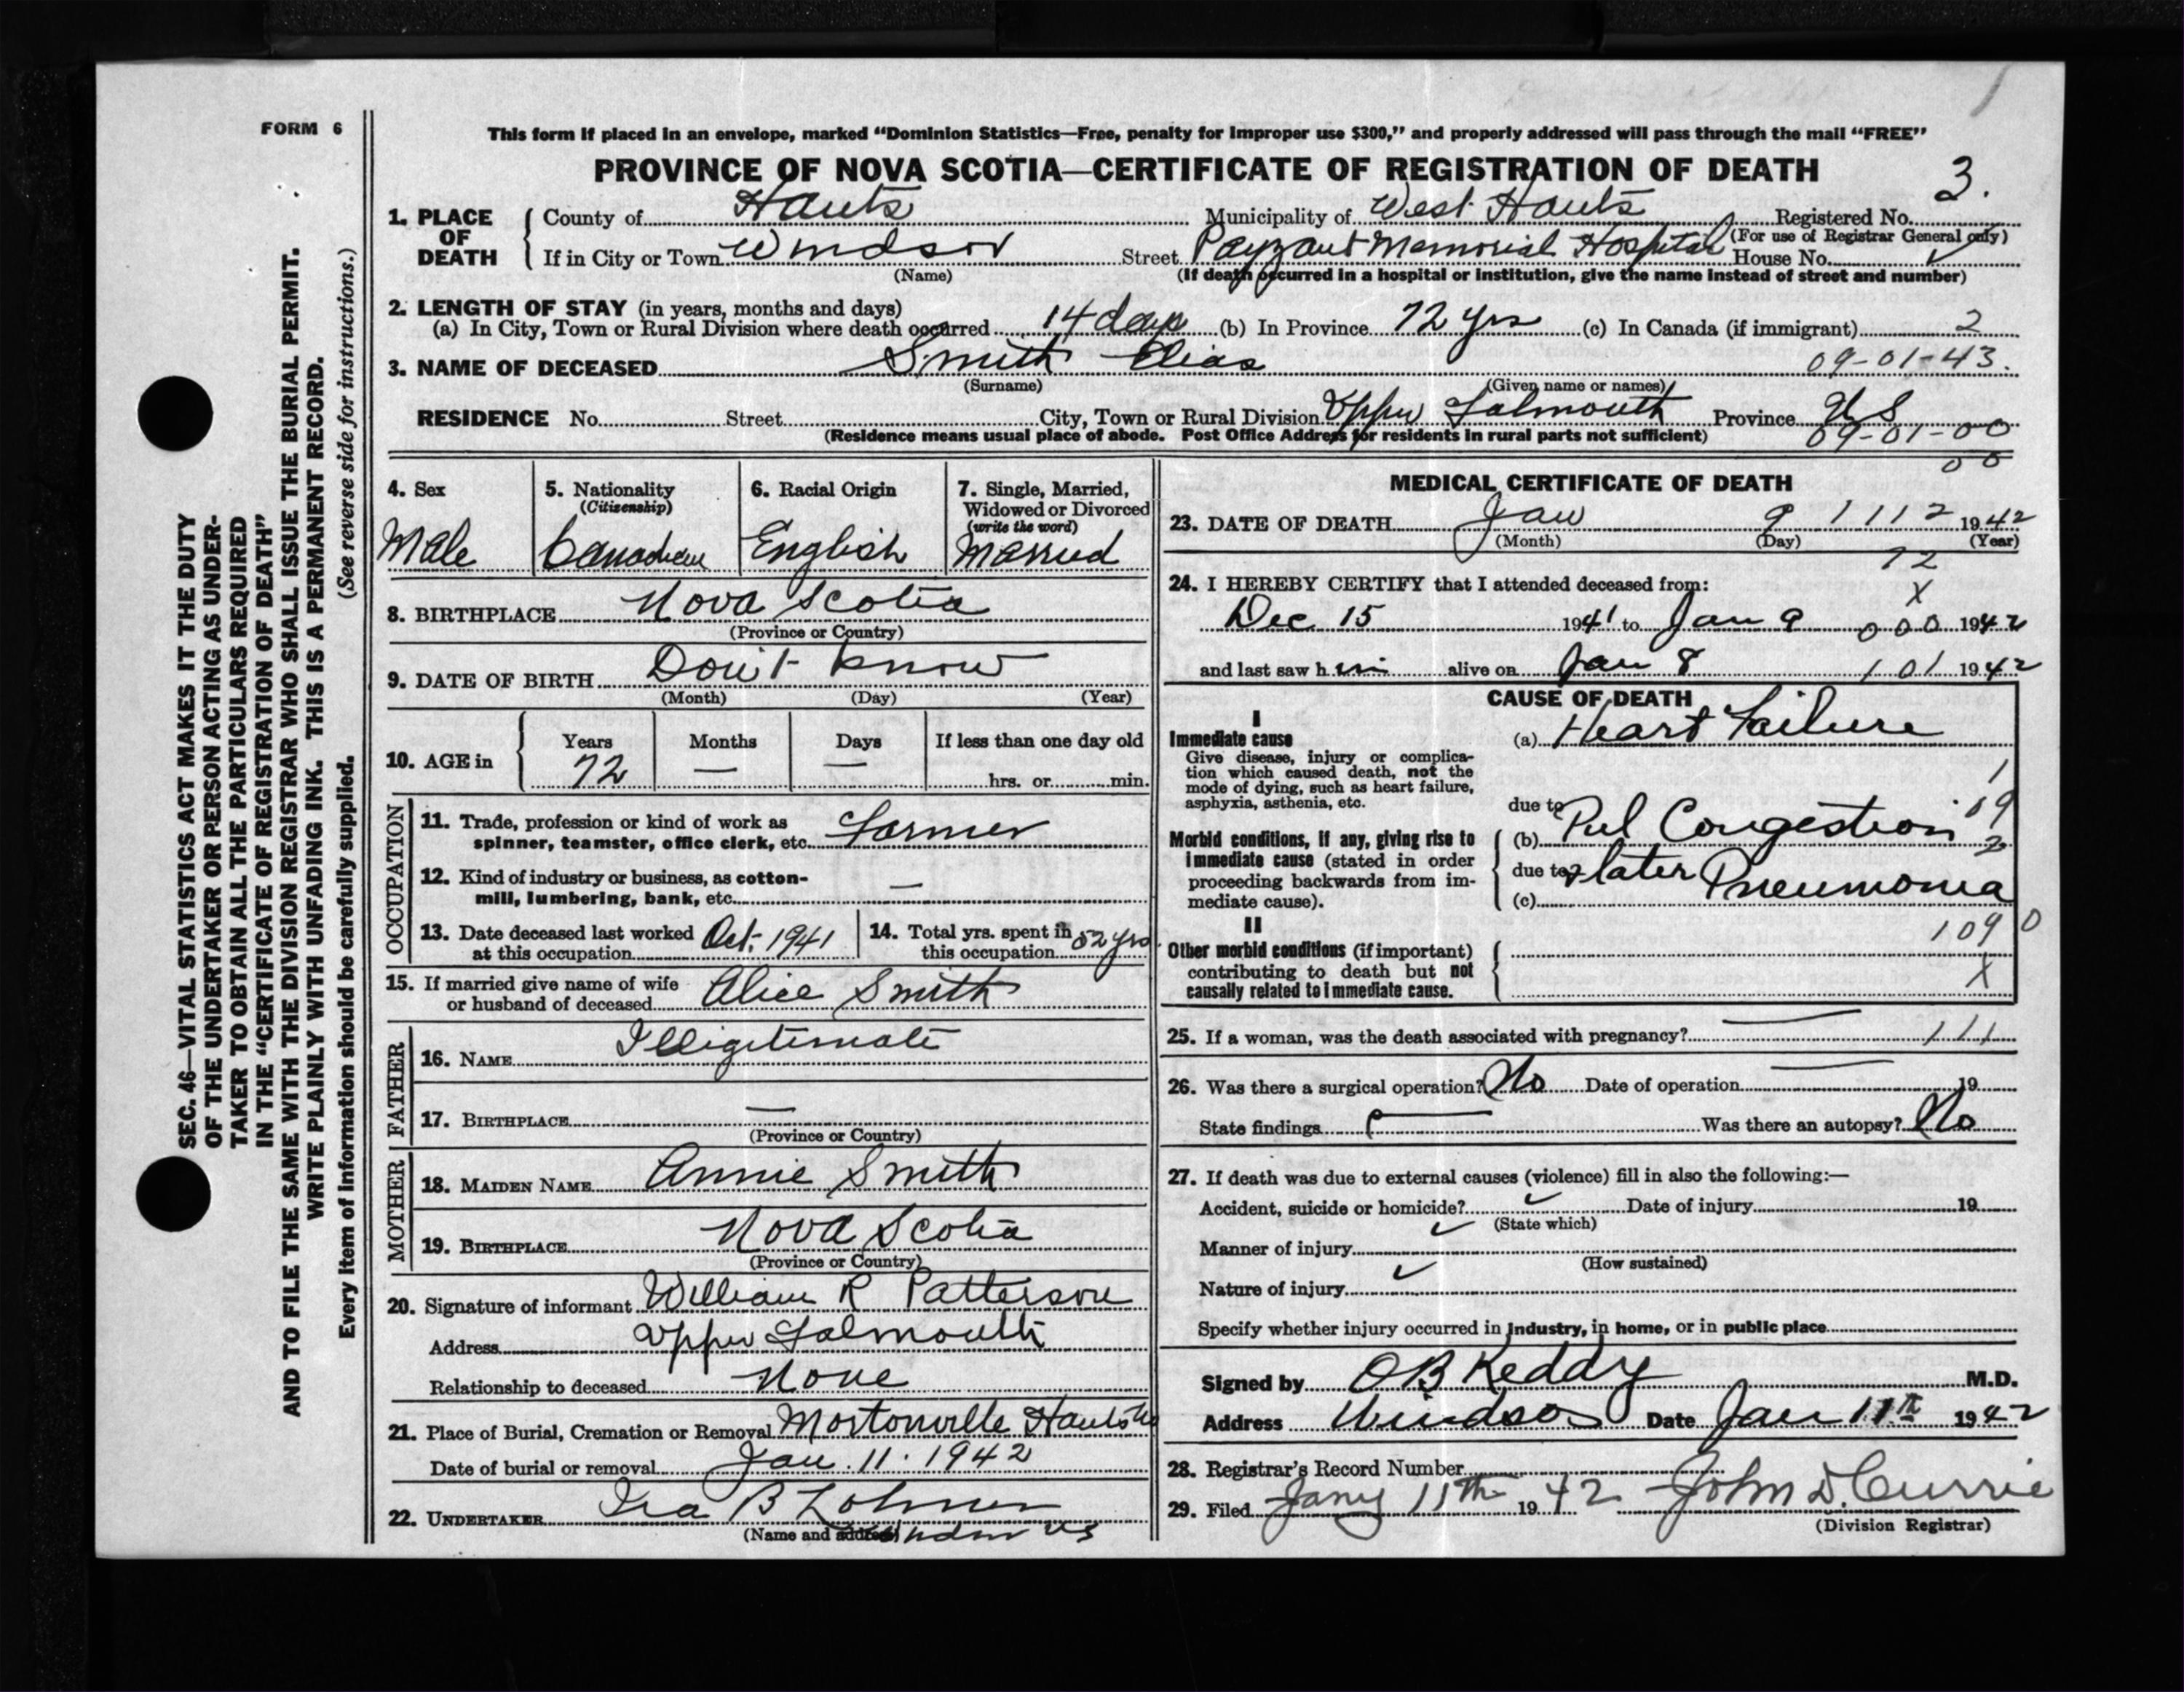 FORM 6
This form if placed in an envelope, marked “Dominion Statistics—Free, penalty for improper use $300,” and properly addressed will pass through the mail “FREE”
PROVINCE OF NOVA SCOTIA—CERTIFICATE OF REGISTRATION OF DEATH
SEC. 46—VITAL STATISTICS ACT MAKES IT THE DUTY
OF THE UNDERTAKER OR PERSON ACTING AS UNDER-
TAKER TO OBTAIN ALL THE PARTICULARS REQUIRED
IN THE “CERTIFICATE OF REGISTRATION OF DEATH”
AND TO FILE THE SAME WITH THE DIVISION REGISTRAR WHO SHALL ISSUE THE BURIAL PERMIT.
WRITE PLAINLY WITH UNFADING INK. THIS IS A PERMANENT RECORD.
Every item of information should be carefully supplied. (See reverse side for instructions.)
1. PLACE OF DEATH County of Hants Municipality of West Hants Registered No. 3.
(For use of Registrar General only)
If in City or Town Windsor Street Payzant Memorial Hospital House No.
(Name) (If death occurred in a hospital or institution, give the name instead of street and number)
2. LENGTH OF STAY (in years, months and days)
(a) In City, Town or Rural Division where death occurred 14 days (b) In Province 72 yrs (c) In Canada (if immigrant) 2
3. NAME OF DECEASED Smith Elias 09-01-43.
(Surname) (Given name or names)
RESIDENCE No. Street City, Town or Rural Division Upper Falmouth Province N S
09-01-00
(Residence means usual place of abode. Post Office Address for residents in rural parts not sufficient)
00
4. Sex 5. Nationality (Citizenship) 6. Racial Origin 7. Single, Married, Widowed or Divorced (write the word)
Male Canadian English Married
8. BIRTHPLACE Nova Scotia
(Province or Country)
9. DATE OF BIRTH Don't know
(Month) (Day) (Year)
10. AGE in Years Months Days If less than one day old
72 — — hrs. or min.
OCCUPATION
11. Trade, profession or kind of work as
spinner, teamster, office clerk, etc. Farmer
12. Kind of industry or business, as cotton-
mill, lumbering, bank, etc. —
13. Date deceased last worked at this occupation Oct. 1941 14. Total yrs. spent in this occupation 52 yrs.
15. If married give name of wife
or husband of deceased Alice Smith
FATHER
16. NAME Illigitimate
17. BIRTHPLACE —
(Province or Country)
MOTHER
18. MAIDEN NAME Annie Smith
19. BIRTHPLACE Nova Scotia
(Province or Country)
20. Signature of informant William R Patterson
Address Upper Falmouth
Relationship to deceased None
21. Place of Burial, Cremation or Removal Mortonville Hants
Date of burial or removal Jan. 11. 1942
22. UNDERTAKER Ira B
(Name and address) Windsor NS
MEDICAL CERTIFICATE OF DEATH
23. DATE OF DEATH Jan 9 1112 1942
(Month) (Day) (Year)
72
24. I HEREBY CERTIFY that I attended deceased from: X
Dec 15 1941 to Jan 9 000 1942
and last saw him alive on Jan 8 101 1942
CAUSE OF DEATH
I
Immediate cause (a) Heart Failure
Give disease, injury or complica-
tion which caused death, not the
mode of dying, such as heart failure,
asphyxia, asthenia, etc.
1
due to 09
Morbid conditions, if any, giving rise to
immediate cause (stated in order
proceeding backwards from im-
mediate cause).
(b) Pul Congestion 2
due to & later Pneumonia
(c)
II 1090
Other morbid conditions (if important)
contributing to death but not
causally related to immediate cause. X
25. If a woman, was the death associated with pregnancy? — 111
26. Was there a surgical operation? No Date of operation — 19
State findings Was there an autopsy? No
27. If death was due to external causes (violence) fill in also the following:—
Accident, suicide or homicide? Date of injury 19
(State which)
Manner of injury
(How sustained)
Nature of injury
Specify whether injury occurred in industry, in home, or in public place
Signed by O B Keddy M.D.
Address Windsor Date Jan 11th 1942
28. Registrar's Record Number
29. Filed Jany 11th 1942 John D. Currie
(Division Registrar)